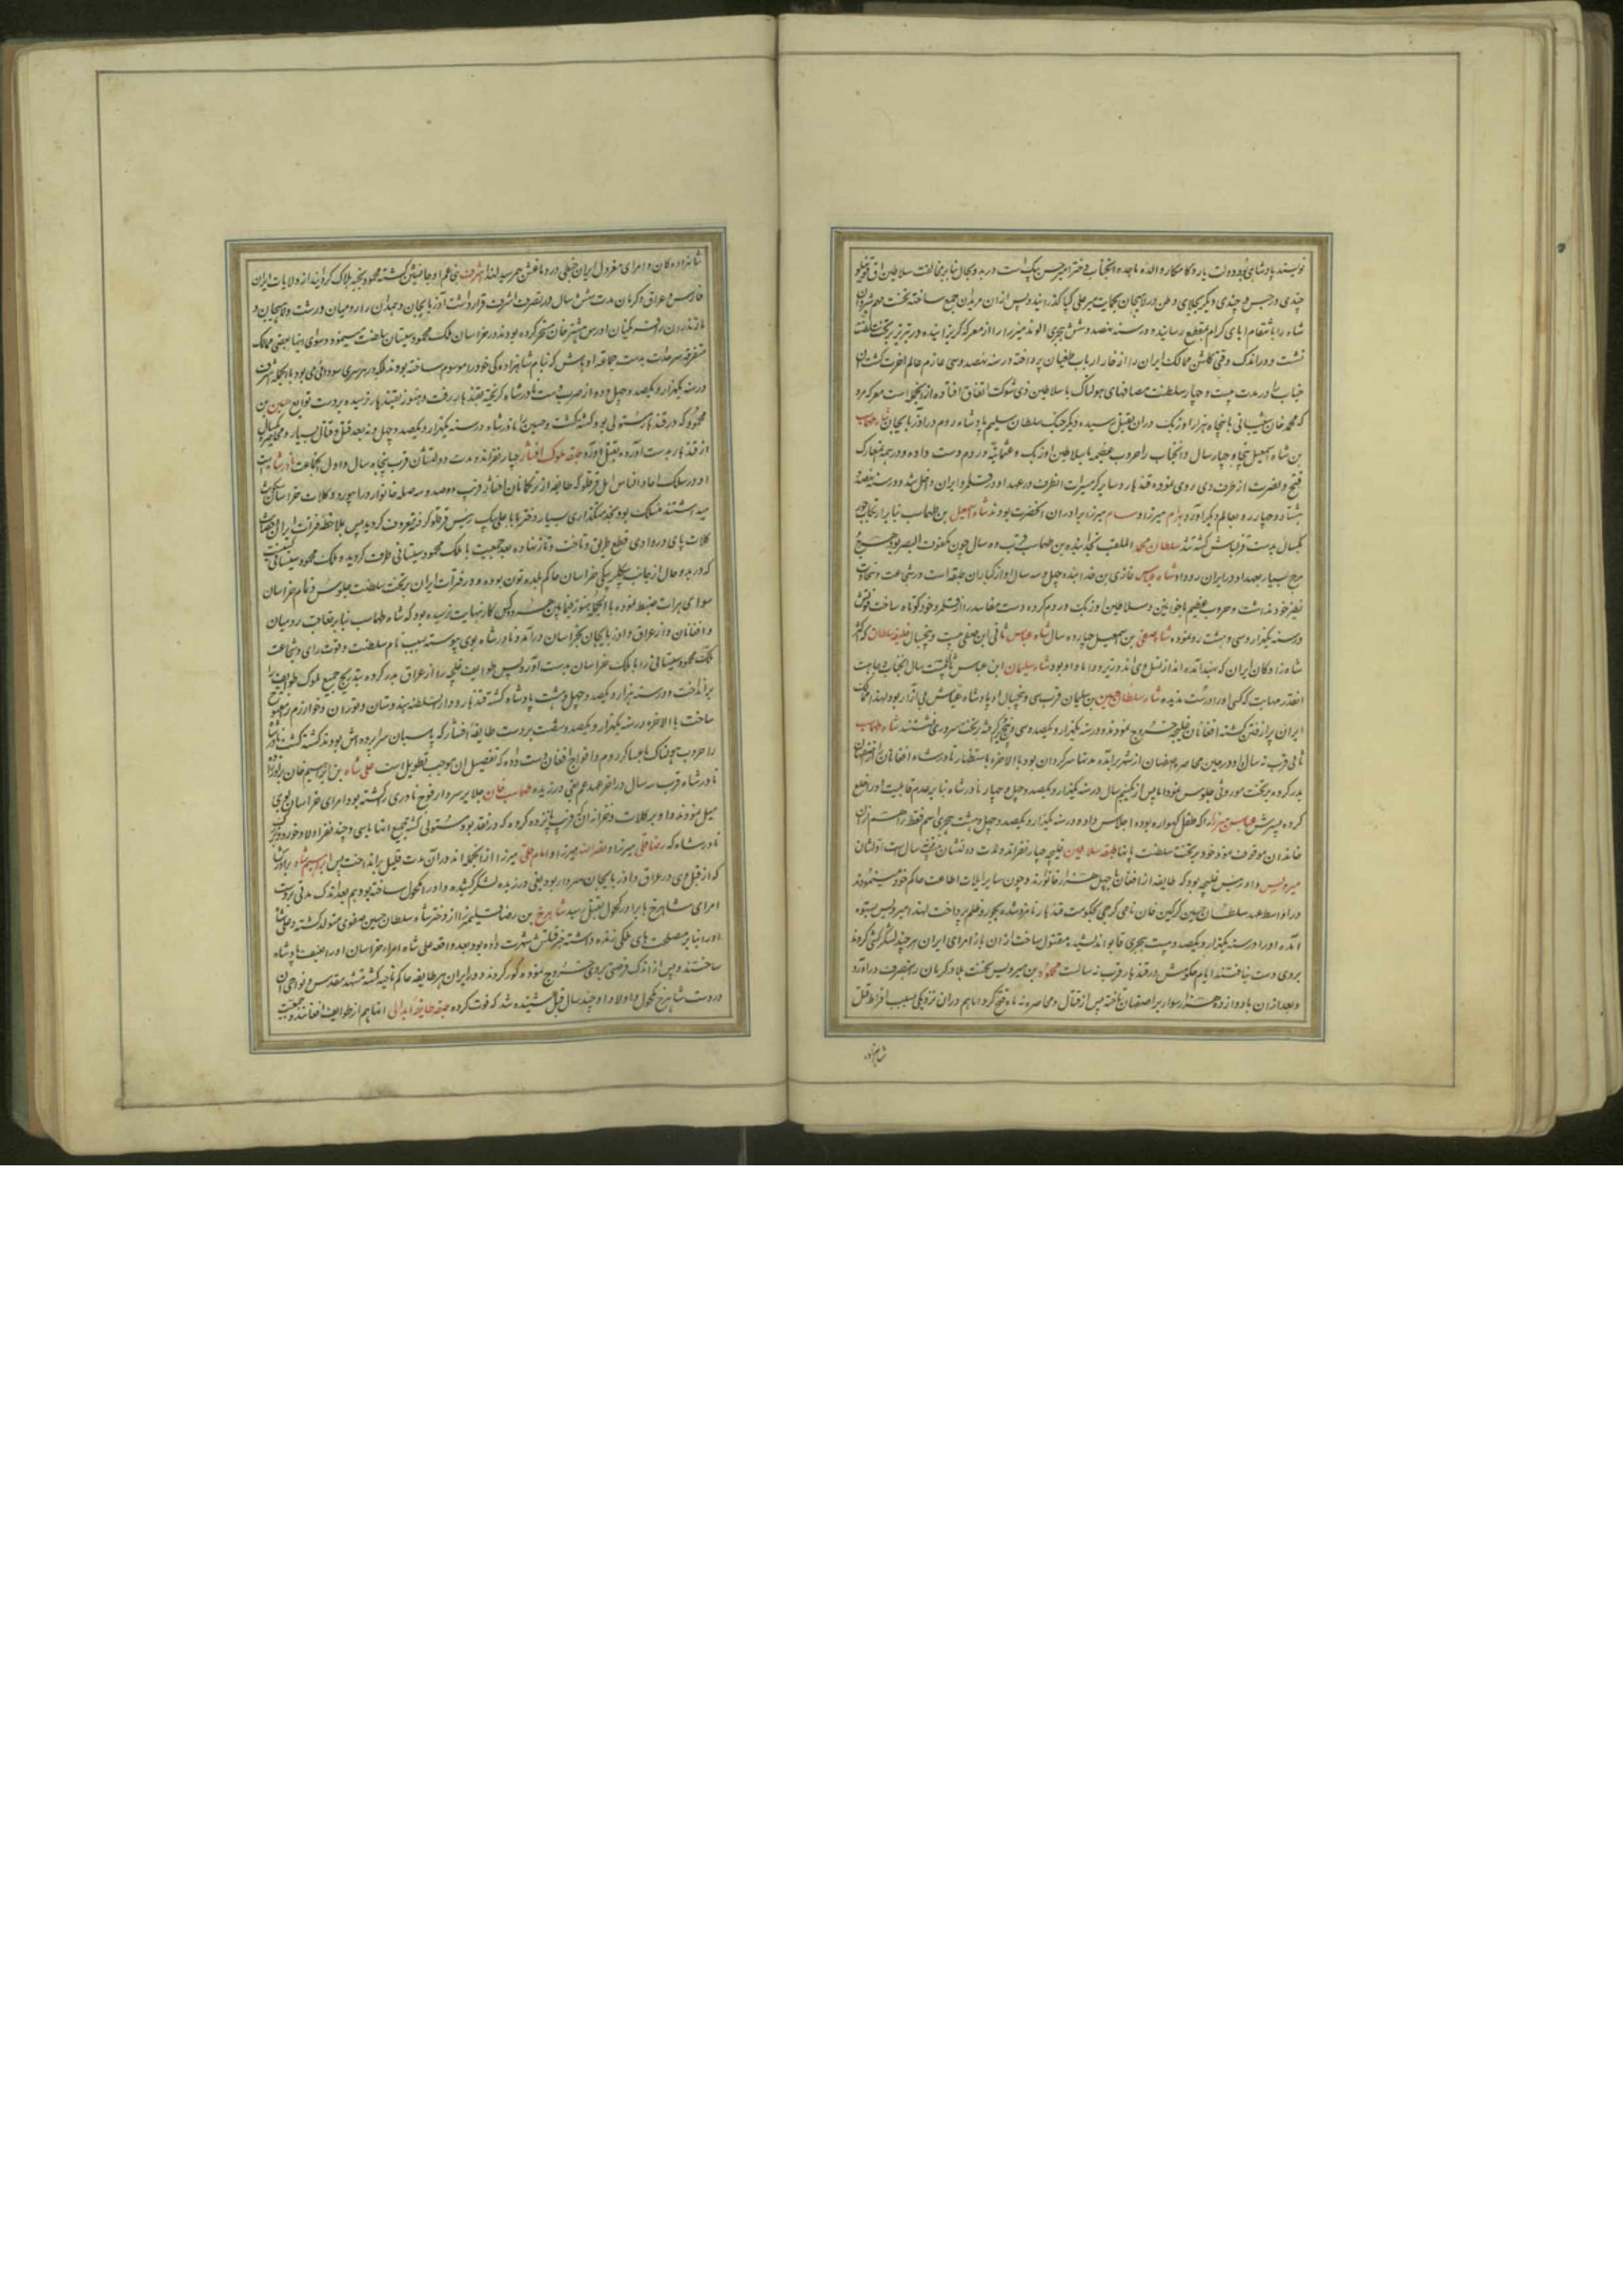 نویسند پادشاهی بود دولت یار و کامکار والده ماجده انجناب دختر امیر حسن بیک است در بدو حال بنابر مخالفت سلاطین اق قوینلو
چندی در حبس و چندی دیگر بجلای وطن در لاهیجان بحمایت میر علی کیا گذرانیده پس از ان مریدان جمع ساخته نخست مهم شروان
شاه را بانتقام ابای کرام بمقطع رسانیده و در سنه نهصد و شش هجری الوند میرزا را از معرکه گریزانیده در تبریز بر تخت سلطنت
نشست و در اندک وقتی گلشن ممالک ایران را از خار ارباب طغیان پرداخته در سنه نهصد و سی عازم عالم اخرت گشت ان
جناب را در مدت بیست و چهار سلطنت مصافهای هولناک با سلاطین ذی شوکت اتفاق افتاده از انجمله است معرکه مرو
که محمد خان شیبانی با پنجاه هزار اوزبک در ان بقتل رسیده دیگر جنگ سلطان سلیم پادشاه روم در اذربایجان شاه طهماسب
بن شاه اسمعیل پنجاه و چهار سال و انجناب را حروب عظیمه با سلاطین اوزبک و عثمانیه روم دست داده و در همه معارک
فتح و نصرت از طرف وی روی نموده قندهار و سایر گرمسیرات انطرف در عهد او در قلمرو ایران داخل شد و در سنه نهصد و
هشتاد و چهار رو بعالم دیگر اورد و بهرام میرزا و سام میرزا برادران انحضرت بودند شاه اسمعیل بن طهماسب
یکسال بدست قزلباش کشته شد سلطان محمد الملقب بخدابنده بن طهماسب قرب ده سال چون مکفوف البصر بود هرج
مرج بسیار بعهد او در ایران رو داد شاه عباس غازی بن خدابنده چهل و سه سال و از کباران طبقه است در شجاعت و سخاوت
نظیر خود نداشت و حروب عظیم با خوانین و سلاطین اوزبک و روم کرده دست مفاسد را از قلمرو خود کوتاه ساخت فوتش
در سنه یکهزار و سی و هشت رو نموده شاه صفی بن چهارده سال شاه عباس ثانی ابن صفی بیست و پنجسال خلیفه سلطان که اکثر
شاهزادگان ایران که بهند آمده اند از نسل وی اند وزیر و داماد او بود شاه سلیمان ابن عباس ثانی بیست سال انجناب بجاهت
انقدر مهابت که کسی او را درست ندیده شاه سلطان حسین بن سلیمان قرب سی و پنجسال او پادشاه عیاش بی آزار بود لهذا ممالک
ایران پر از فتن گشته افغانان غلیجه خروج نمودند و در سنه یکهزار و یکصد و سی و پنج گرفته بر تخت سروری نشستند شاه طهماسب
ثانی قرب نه سال او در حین محاصره اصفهان از شهر برآمده مدتها سرگردان بود بالاخره باستظهار نادر شاه افغانان را از اصفهان
بدر کرده بر تخت موروثی جلوس نمود اما پس از یکنیم سال در سنه یکهزار و یکصد و چهل و چهار نادر شاه بنابر عدم قابلیت او را خلع
کرده پسرش عباس میرزا را که طفل گهواره بوده اجلاس داده و در سنه یکهزار و یکصد و چهل و هشت هجری اسم فقط را هم از ان
خاندان موقوف نموده خود بر تخت سلطنت پا نهاد طبقه سلاطین غلیجه چهار نفراند و مدت دولتشان قرب سال است اولشان
میرویس و او رئیس غلیجه بود که طایفه از افغان با چهل هزار خانوارند و چون سایر ایلات اطاعت حاکم خود مینمودند
در اواسط عهد سلطان حسین گرگین خان نامی گرجی بحکومت قندهار نامزد شده بجور و ظلم پرداخت لهذا میرویس بستوه
آمده او را در سنه یکهزار و یکصد و بیست هجری قابو اندیشیده مقتول ساخت از ان باز امرای ایران هرچند لشکرکشی کردند
بروی دست نیافتند ایام حکومتش در قندهار قرب نه سالست محمود بن میرویس نخست بلاد کرمان را بتصرف دراورد
و بعد از ان با دوازده هزار سوار بر اصفهان تاخته پس از قتال و محاصره نه ماه فتح کرد اما هم در ان نزدیکی بسبب افراط قتل
شاهزاده
شاهزادگان و امرای معزول ایران خبطی در دماغش بهم رسید لهذا اشرف بنی عم او جانشین گشته محمود بخبه هلاک گردانید از ولایات ایران
فارس و عراق و کرمان مدت شش سال در تصرف اشرف قرار داشت آذربایجان و همدان را رومیان و رشت و لاهیجان و
مازندران را و در خراسان ملک محمود سیستانی سلطنت مینمود و سوای اینها بعضی ممالک
متفرقه سرحدات بدست جماعه اوباش که بنام شاهزاده گی خود را موسوم ساخته بودند بلکه در هر سری سودائی می بود بالجمله اشرف
در سنه یکهزار و یکصد و چهل و دو از ضرب دست نادر شاه گریخته بقندهار رفت و هنوز بقندهار نرسیده بر دست توابع حسین بن
محمود که در قندهار مستولی بود کشته گشت و حسین را نادر شاه در سنه یکهزار و یکصد و چهل و نه بعد قتل و قتال بسیار و محاصره یکسال
از قندهار بدست آورده بقتل آورد طبقه ملوک افشار چهار نفراند و مدت دولتشان قرب پنجاه سال و اول انجماعت نادر شاه است
او در سلک احاد الناس ایل قرقلو که طایفه از ترکانان افشار قرب دوصد و سه صد خانوار در ابیورد و کلات خراسان
میداشتند منسلک بود بخدمتگذاری بسیار دختر بابا علی بیک رئیس قرقلو گرفته معروف گردید پس بملاحظه فترات ایران
کلات پای در وادی قطع طریق و تاخت و تاز نهاده بعد جمعیت با ملک محمود سیستانی طرف گردید و ملک محمود سیستانی
که در بدو حال از جانب بیگلربیگی خراسان حاکم بلده تون بوده و در فترات ایران بر تخت سلطنت جلوس و تمام خراسان
سوای هرات ضبط نموده بالجمله هنوز فیمابین کار بنهایت نرسیده بود که شاه طهماسب بنابر تعاقب رومیان
و افغانان و از عراق و اذربایجان بخراسان درآمد و نادر شاه بوی پیوسته سبب نام سلطنت و قوت رای و شجاعت
ملک محمود سیستانی را با ملک خراسان بدست اورد پس طوایف غلیجه را از عراق بدر کرده بتدریج جمیع ملوک طوایف را
برانداخت و در سنه هزار و یکصد و چهل و هشت پادشاه گشته قندهار و دارالسلطنه هندوستان و توران و خوارزم را مفتوح
ساخت بالاخره در سنه یکهزار و یکصد و شصت بر دست طایفه افشار که پاسبان سراپرده اش بودند کشته گشت نادر شاه
را حروب هولناک با عساکر روم و افواج افغان دست داده که تفصیل ان موجب تطویل است علی شاه بن ابراهیم خان برادرزاده
نادر شاه قرب سه سال در اخر عهد عم بغی ورزیده طهماسب خان جلایر سردار فوج نادری را کشته بود امرای خراسان بوی
میل نمودند و او بر کلات و خزانه ان قرب پانزده کرور که در نقد بود مستولی گشته جمیع
نادر شاه که رضا قلی میرزا و نصر الله میرزا و امام قلی میرزا از انجمله اند در آن مدت قلیل برانداخت پس ابراهیم شاه برادرش
که از قبل وی در عراق و اذربایجان سردار بود بغی ورزیده لشکر کشیده و او را مکحول ساخته بود هم بعد اندک مدتی بر دست
امرای شاهرخ با برادر مکحول بقتل رسید شاهرخ بن رضا قلی میرزا از دختر شاه سلطان حسین صفوی متولد گشته و علی شاه
او را بنابر مصلحت های ملکی زنده داشته خبر قتلش شهرت داده بود بعد واقعه علی شاه امراء خراسان او را بسلطنت پادشاه
ساختند و پس از اندک فرصتی بروی خروج نموده کور کردند و در ایران هر طایفه حاکم ناحیه گشته مشهد مقدس و نواحی ان
در دست شاهرخ مکحول و اولاد او چند سال قبل شنیده شد که فوت کرده طبقه طایفه ابدالی اینها هم از طوایف افغانند و جمعیت